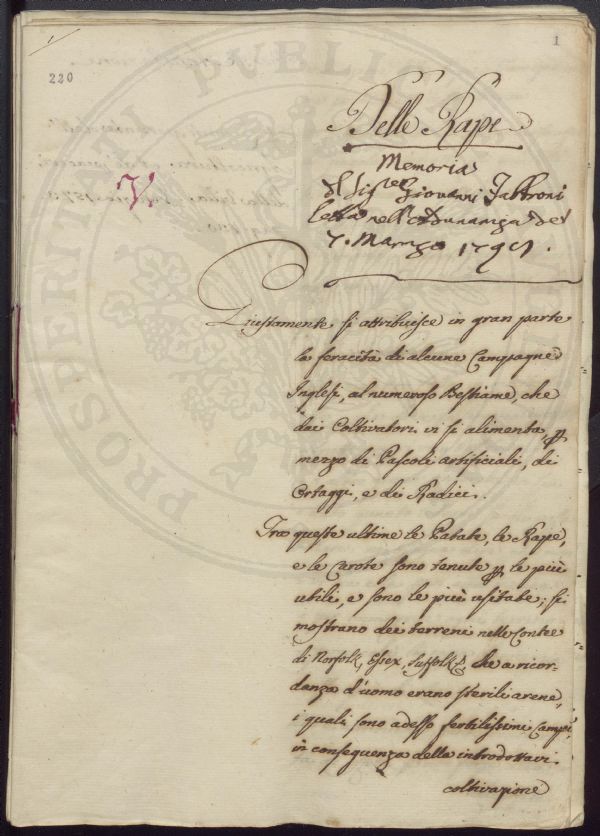 1
220
Delle Rape
Memoria
del Sig.re Giovanni Fabbroni
letta nell'Adunanza de
7. Marzo
Giustamente si attribuisce in gran parte
la feracità di alcune Campagne
Inglesi, al numeroso Bestiame, che
dai Coltivatori vi si alimenta, p
mezzo di Pascoli artificiali, di
Ortaggi, e di Radici.
Tra queste ultime le Patate, le Rape,
e le Carote sono tenute p le più
utili, e sono le più usitate; si
mostrano dei terreni nelle Contee
di Norfolk, Essex, Suffolk &, che a ricor-
danza d'uomo erano sterili arene,
i quali sono adesso fertilissimi Campi,
in conseguenza della introdottavi
coltivazione
PROSPERITATI PUBLIC